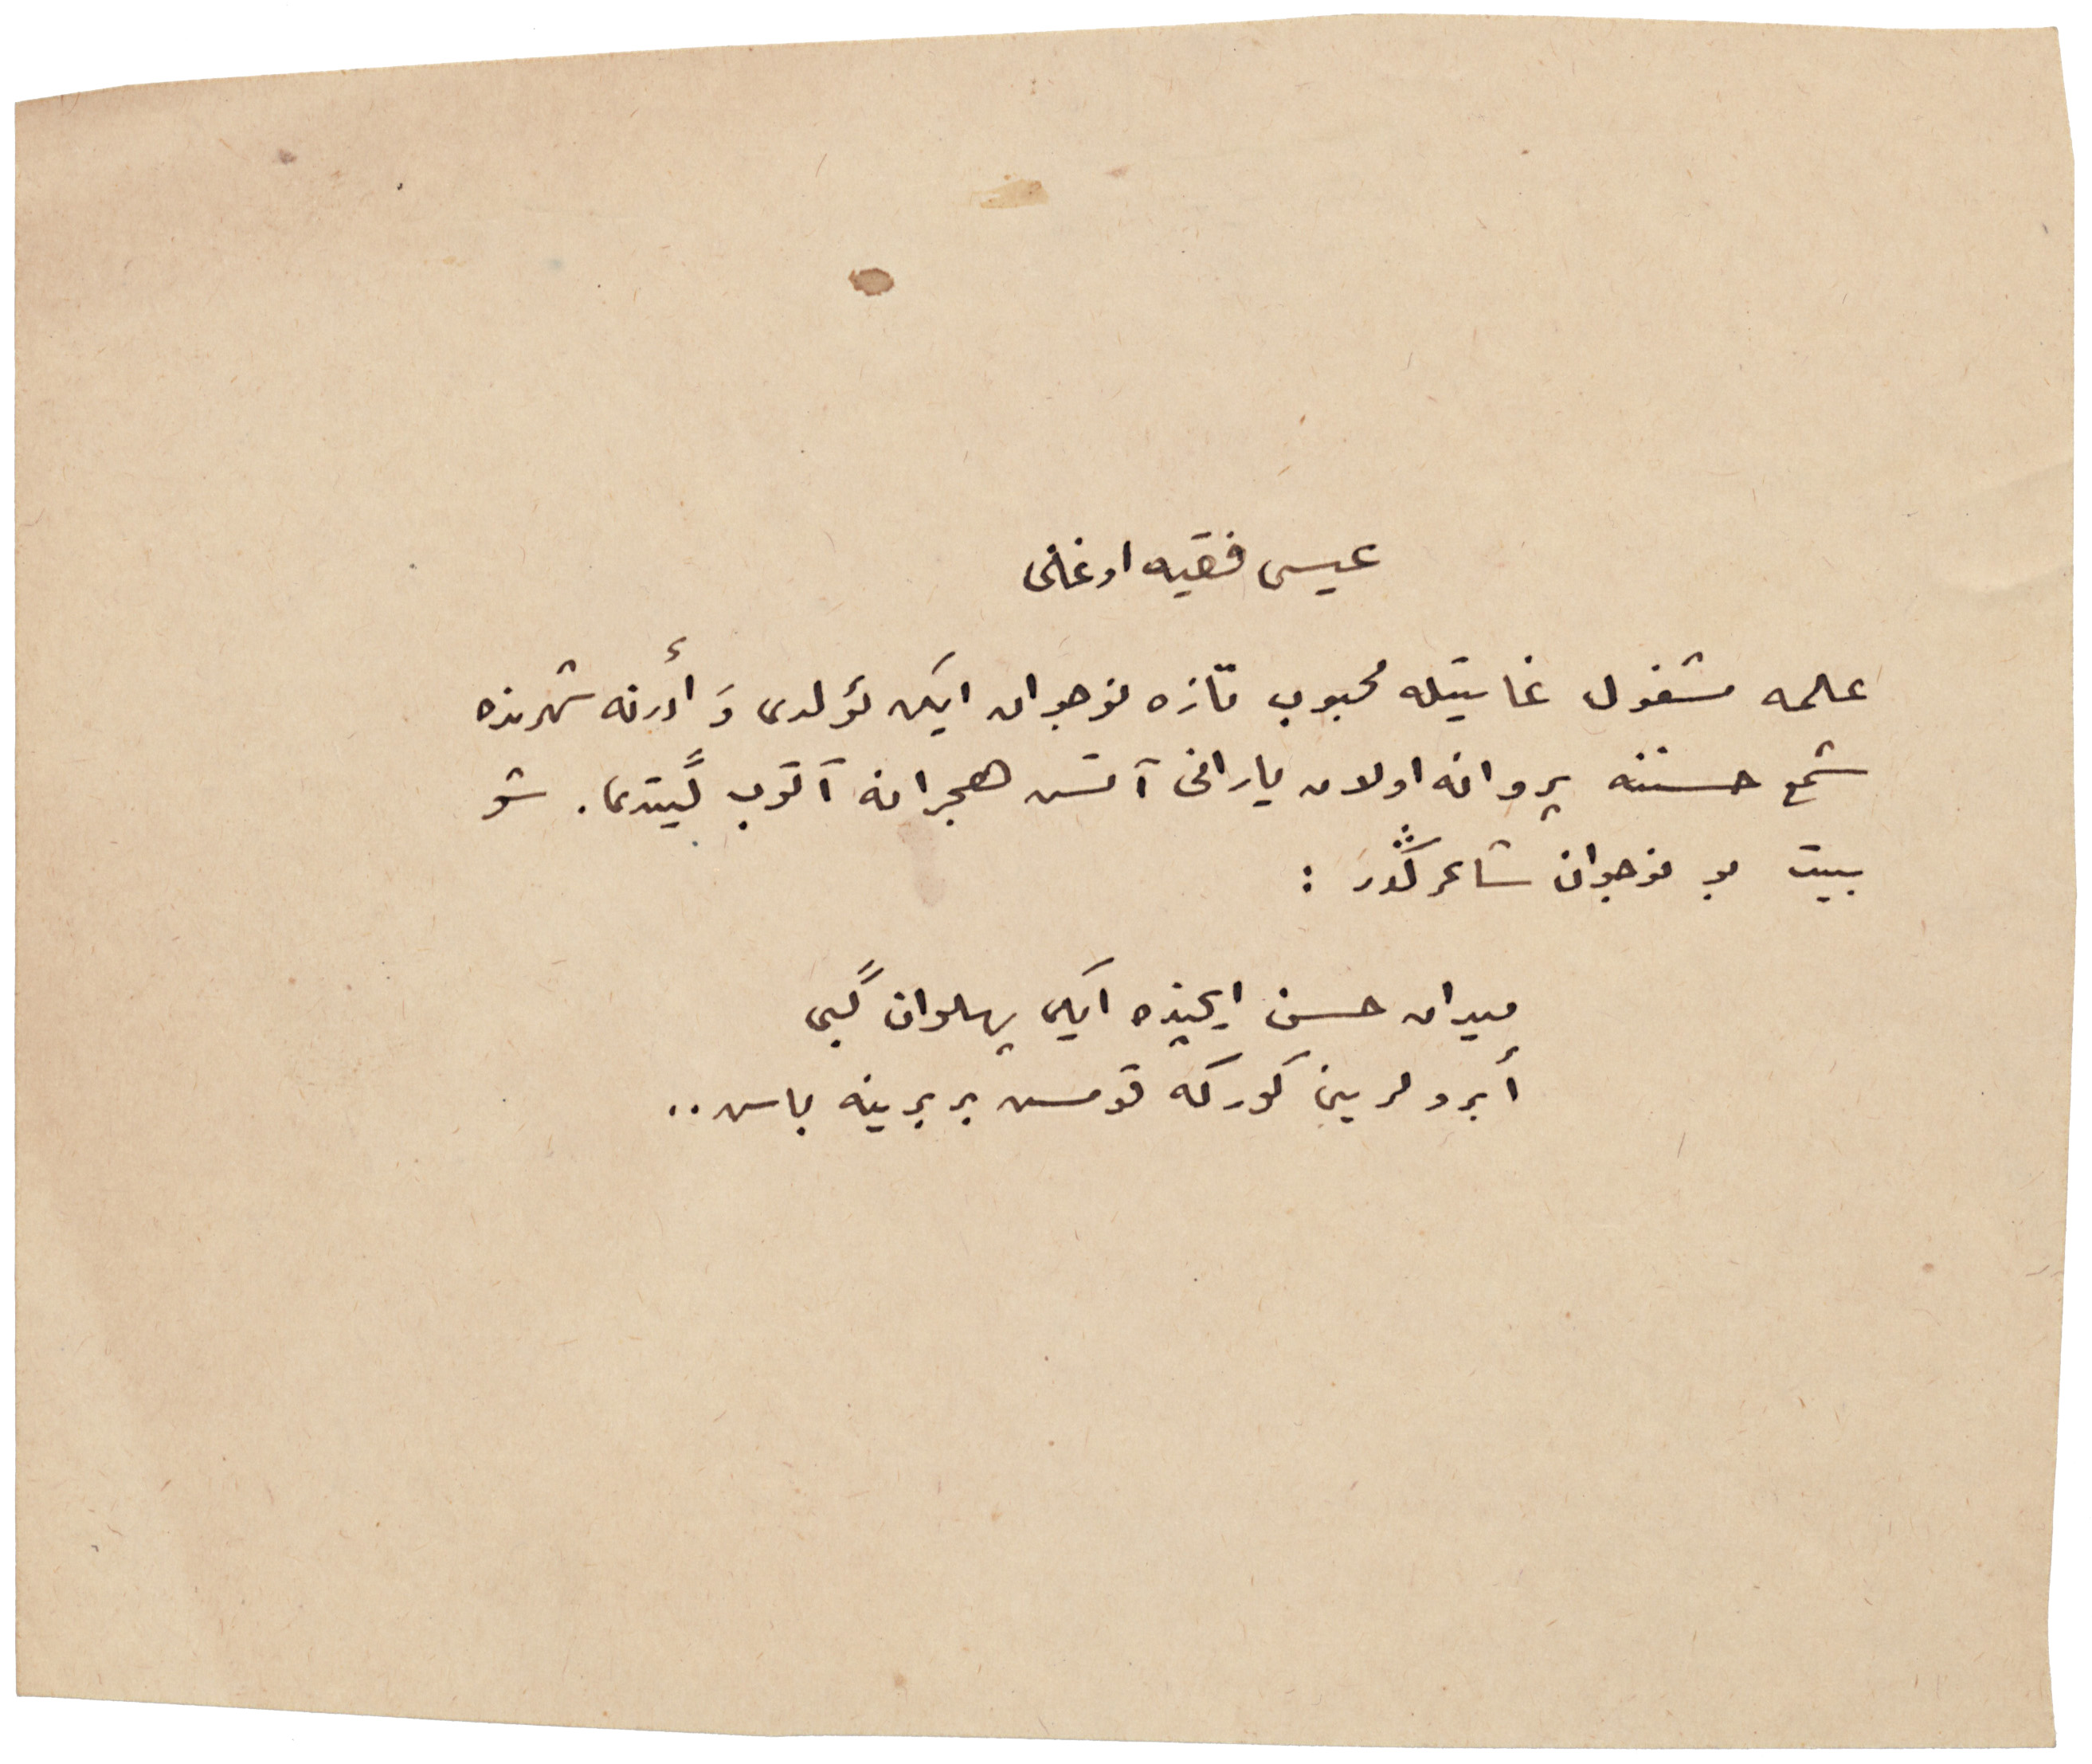 عیسی فقیه اوغلی
علمه مشغول غایتله محبوب تازه نوجوان ایکن ئولدی وَ أدرنه شهرنده
شمع حسننه پروانه اولان یارانی آتش هجرانه آتوب گیتدی. شو
بیت بو نوجوان شاعرڭدر :
میدان حسن ایچنده ایکی پهلوان گبی
أبرولرینی کورکه قومش بربرینه باش..